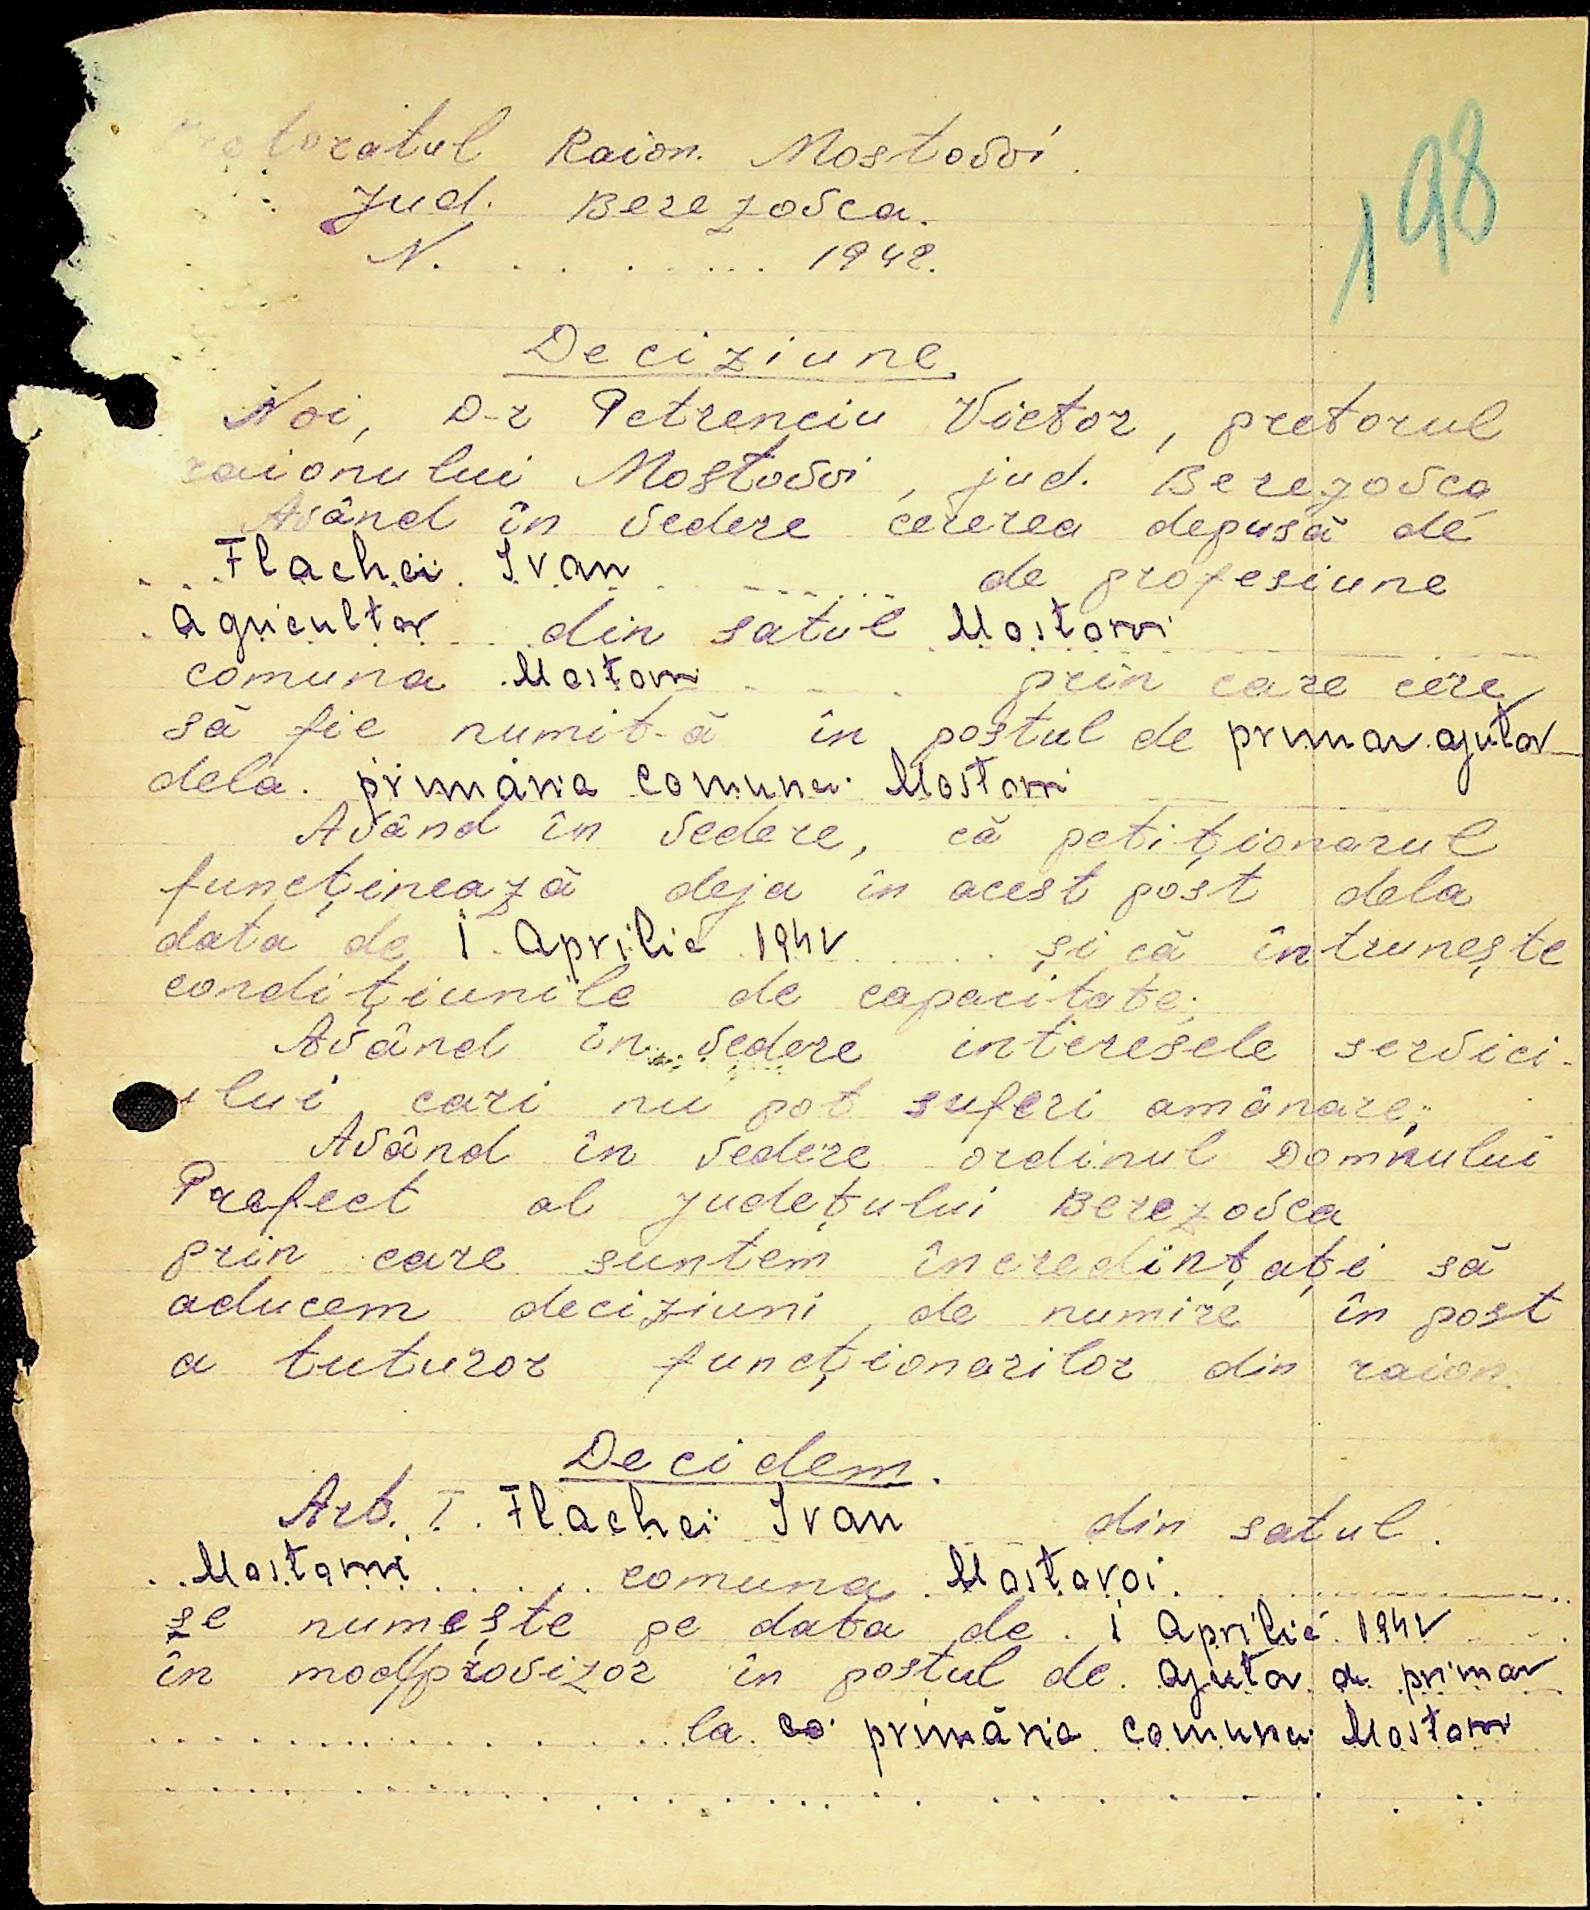 Pretoratul Raion. Mostovoi.
198
Jud. Berezovca.
N. . . . . . . . . . 1942.
Deciziune
Noi, D-r Petrenciu Victor, pretorul
raionului Mostovoi, jud. Berezovca
Având în vedere cererea depusă de
. . . Flachei Ivan . . . . . . . de profesiune
. agricultor din satul Mostovoi
comuna . Mostovoi . - . prin care cere
să fie numit-ă în postul de primar ajutor
dela . primăria comunei Mostovoi
Având în vedere, că petiționarul
funcținează deja în acest post dela
data de 1 Aprilie 1942 . . . . . și că întrunește
condițiunile de capacitate;
Având în vedere interesele servici-
ului cari nu pot suferi amânare;
Având în vedere ordinul Domnului
Prefect al județului Berezovca
prin care suntem încredințați să
aducem deciziuni de numire în post
a tuturor funcționarilor din raion.
Decidem.
Art. I. Flachei Ivan din satul .
. . Mostovoi . . . . . comuna . Mostovoi . . .
se numește pe data de . 1 Aprilie 1942 . . .
în mod provizor în postul de . ajutor de primar
. . . . . . . . . . . . . . . la primăria comunei Mostovoi
. . . . . . . . . . . . . . . . . . . . . . . .